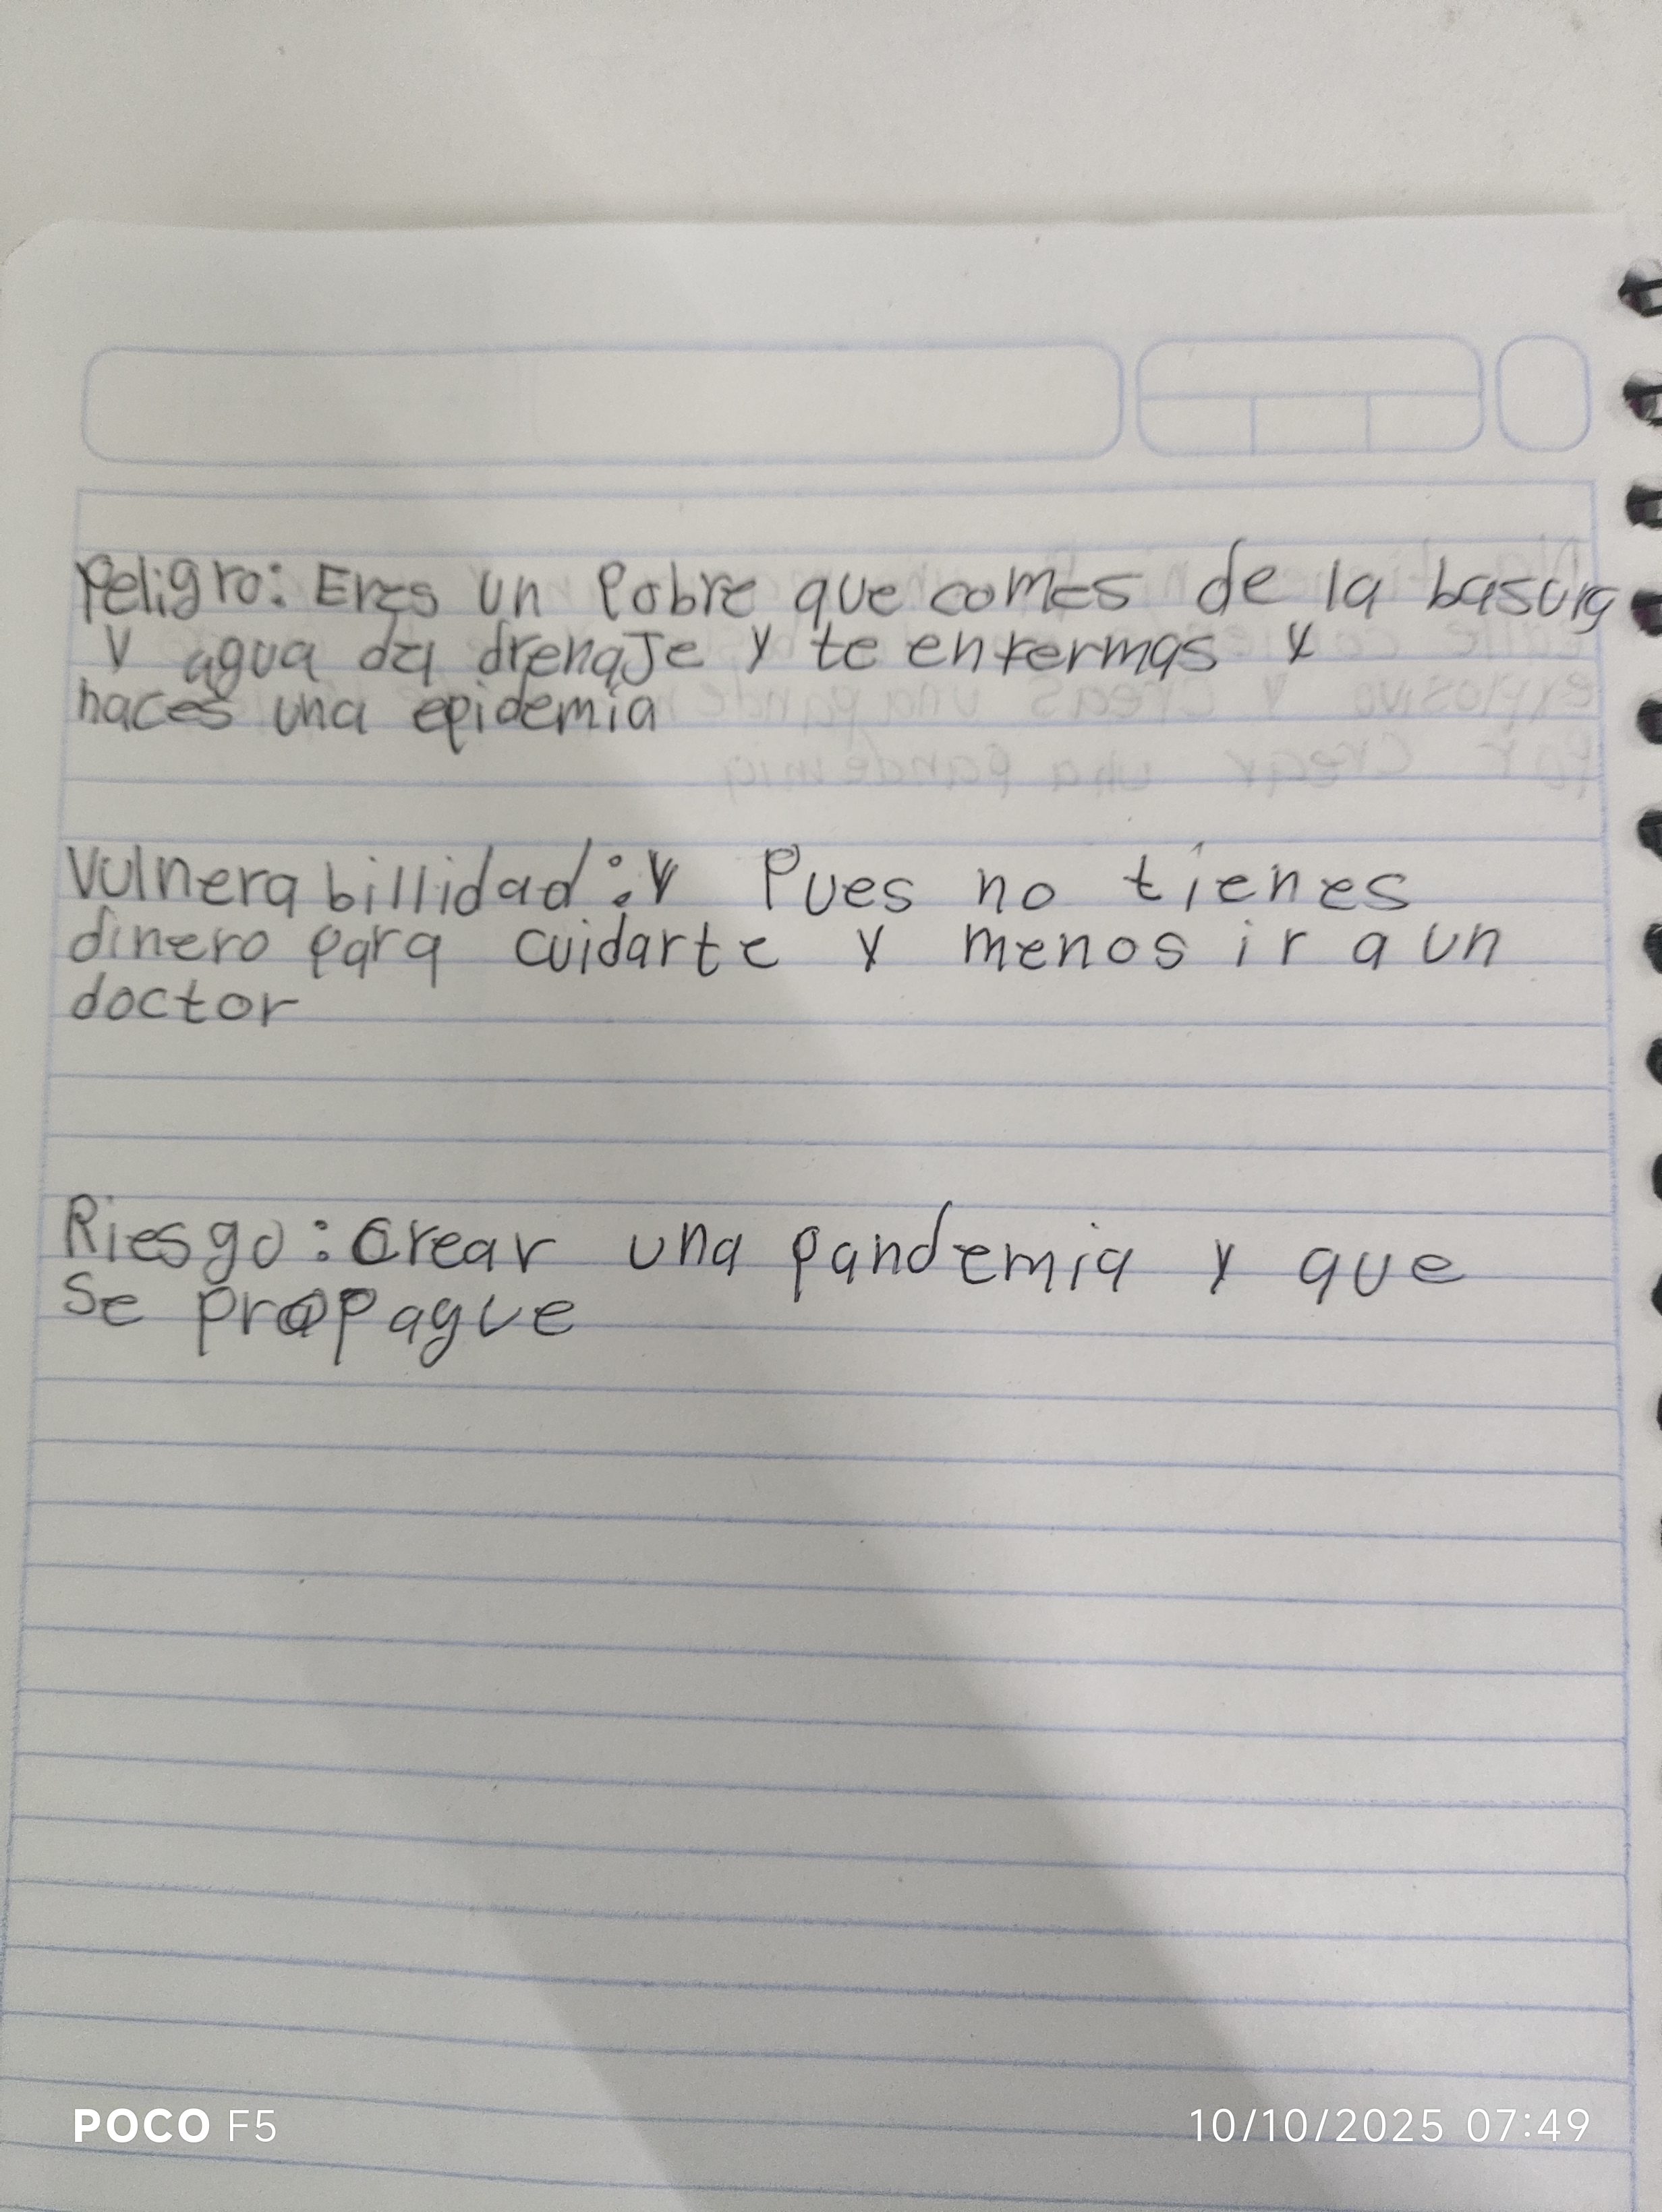 Peligro: Eres un Pobre que comes de la basura
y agua del drenaJe y te enfermas y
haces una epidemia
Vulnerabillidad: y Pues no tienes
dinero para cuidarte y menos ir a un
doctor
Riesgo: crear una pandemia y que
se propague
POCO F5
10/10/2025 07:49